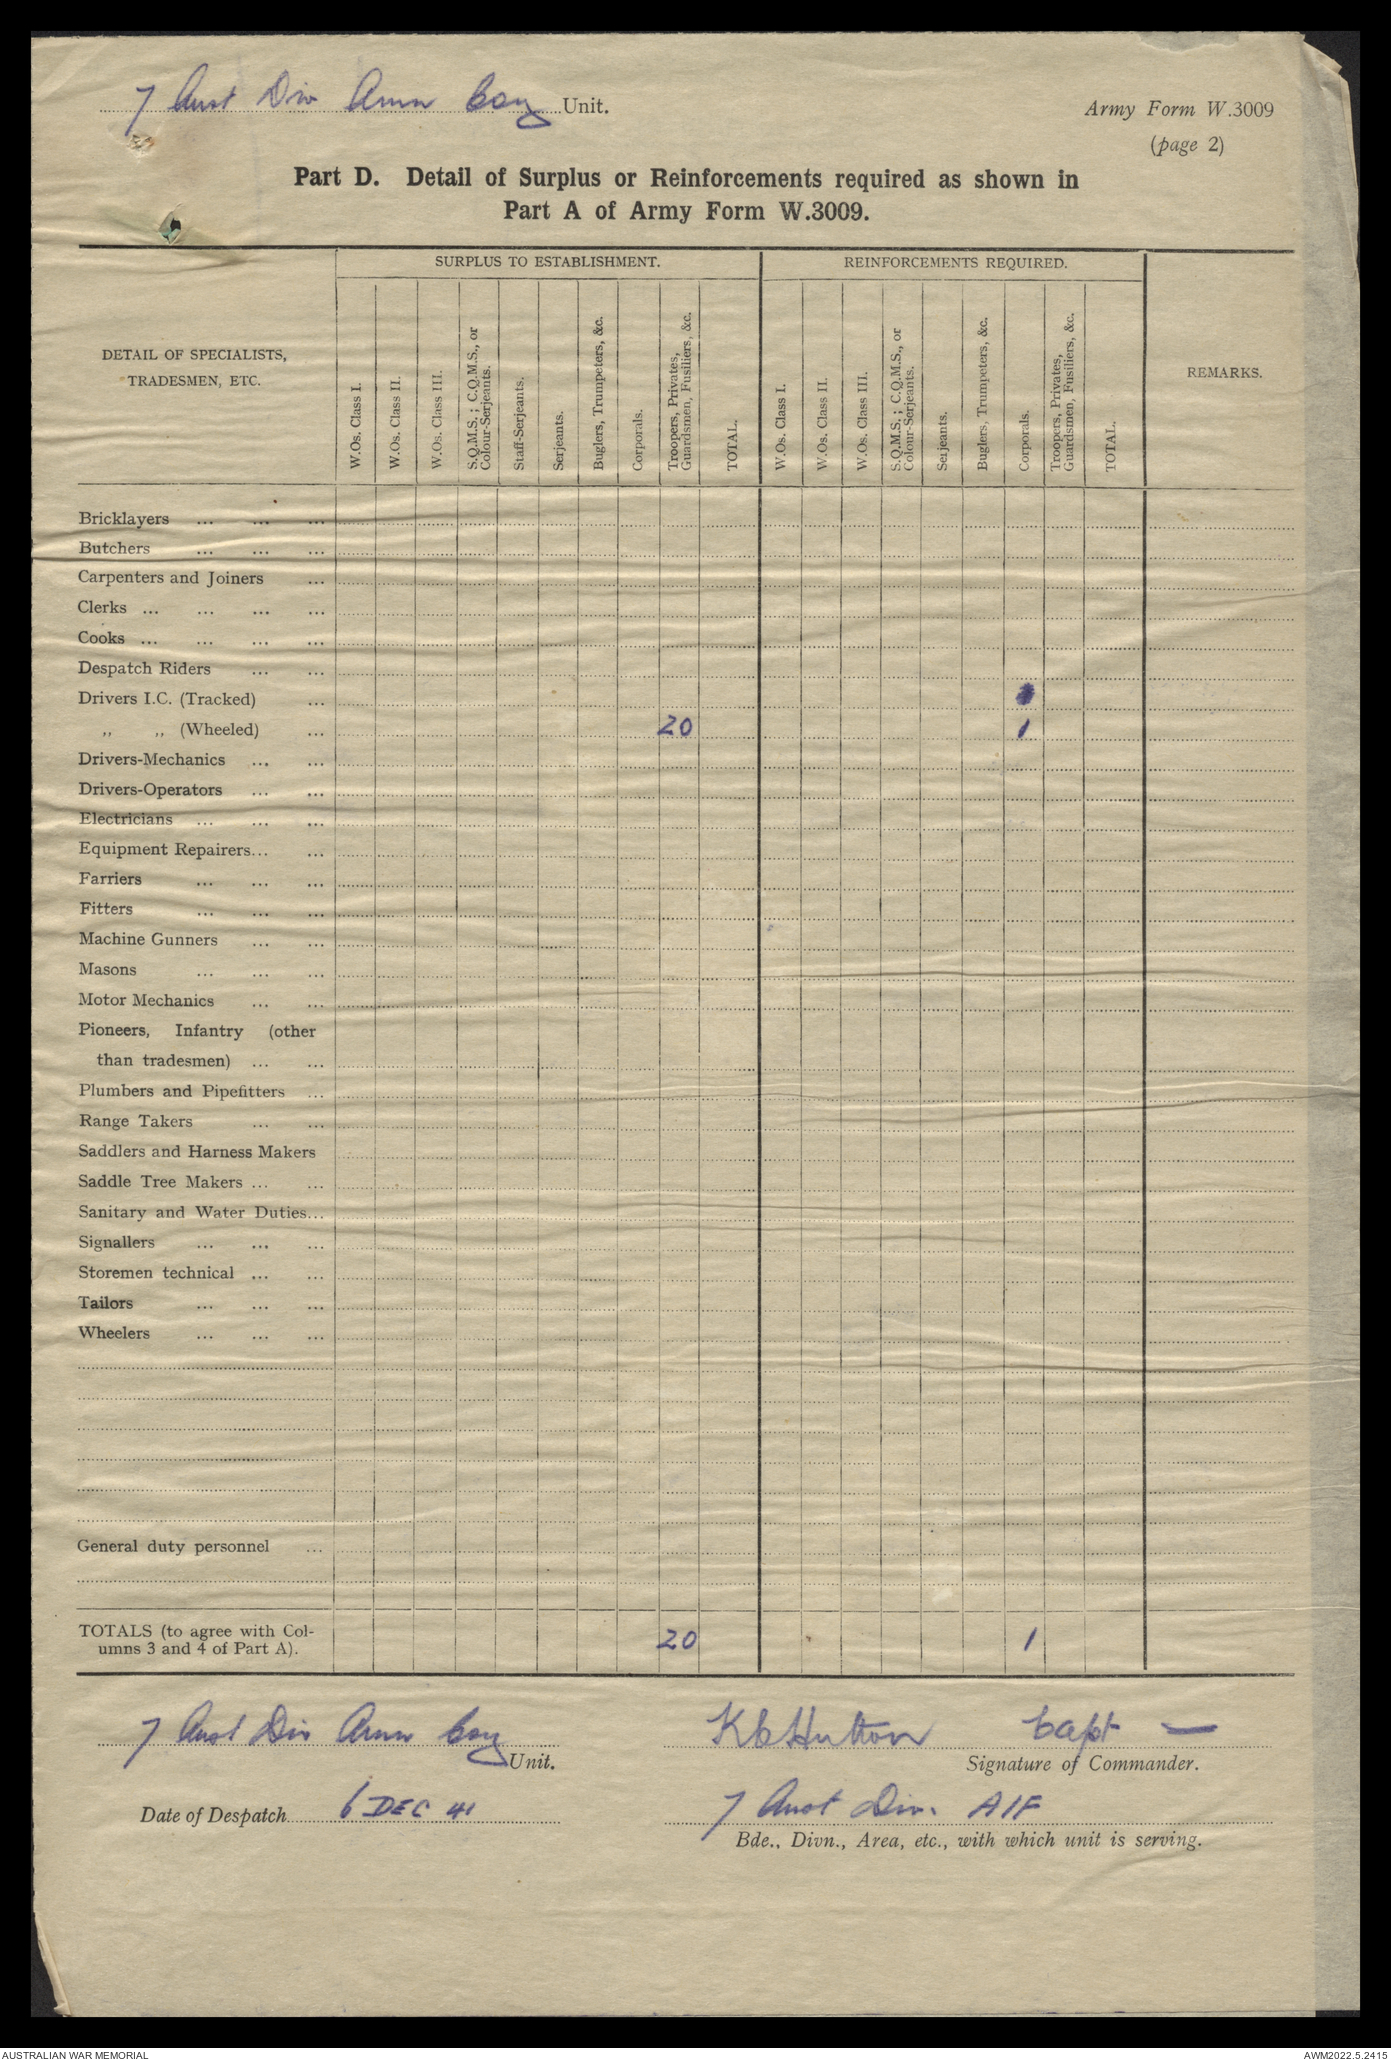 7 Aust Div Amn Coy Unit.
Army Form W.3009
(page 2)
Part D. Detail of Surplus or Reinforcements required as shown in
Part A of Army Form W.3009.
SURPLUS TO ESTABLISHMENT.
REINFORCEMENTS REQUIRED.
DETAIL OF SPECIALISTS,
TRADESMEN, ETC.
W.Os. Class I.
W.Os. Class II.
W.Os. Class III.
S.Q.M.S. ; C.Q.M.S., or
Colour-Serjeants.
Staff-Serjeants.
Serjeants.
Buglers, Trumpeters, &c.
Corporals.
Troopers, Privates,
Guardsmen, Fusiliers, &c.
TOTAL.
W.Os. Class I.
W.Os. Class II.
W.Os. Class III.
S.Q.M.S. ; C.Q.M.S., or
Colour-Serjeants.
Serjeants.
Buglers, Trumpeters, &c.
Corporals.
Troopers, Privates,
Guardsmen, Fusiliers, &c.
TOTAL.
REMARKS.
Bricklayers ... ... ...
Butchers ... ... ...
Carpenters and Joiners ...
Clerks ... ... ... ...
Cooks ... ... ... ...
Despatch Riders ... ...
Drivers I.C. (Tracked) ...
,, ,, (Wheeled) ... 20 1
Drivers-Mechanics ... ...
Drivers-Operators ... ...
Electricians ... ... ...
Equipment Repairers... ...
Farriers ... ... ...
Fitters ... ... ...
Machine Gunners ... ...
Masons ... ... ...
Motor Mechanics ... ...
Pioneers, Infantry (other
than tradesmen) ... ...
Plumbers and Pipefitters ...
Range Takers ... ...
Saddlers and Harness Makers
Saddle Tree Makers ... ...
Sanitary and Water Duties...
Signallers ... ... ...
Storemen technical ... ...
Tailors ... ... ...
Wheelers ... ... ...
General duty personnel ...
TOTALS (to agree with Col-
umns 3 and 4 of Part A). 20 1
7 Aust Div Amn Coy
Unit.
K C Hutton Capt —
Signature of Commander.
Date of Despatch 6 DEC 41
7 Aust Div. AIF
Bde., Divn., Area, etc., with which unit is serving.
AUSTRALIAN WAR MEMORIAL
AWM2022.5.2415